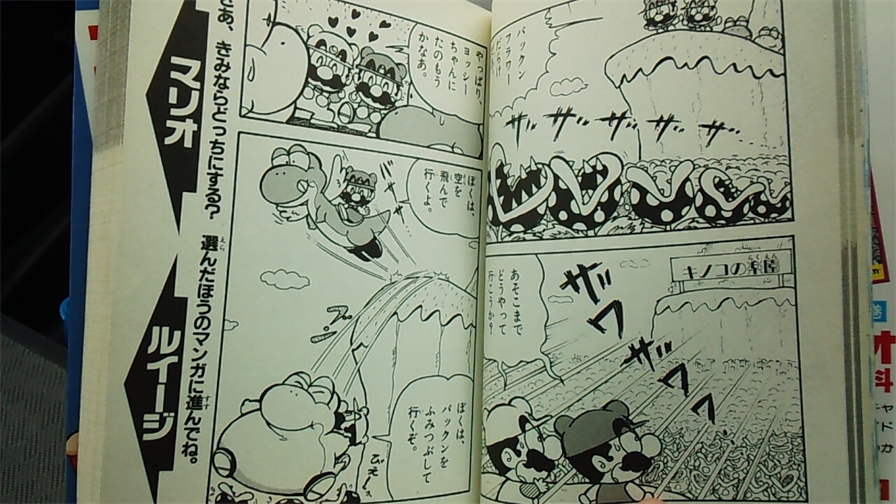 パックン
フラワー
だらけ
ザッ ザッ ザッ ザッ ザッ
キノコの楽園
あそこまで
どうやって
行こうか?
ザ
ワ
ザ
ワ
ワ
やっぱり、
ヨッシー
ちゃんに
たのもう
かなあ。
ぼくは、
空を
飛んで
行くよ。
ぼくは、
パックンを
ふみつぶして
行くぞ。
さあ、きみならどっちにする? 選んだほうのマンガに進んでね。
マリオ
ルイージ